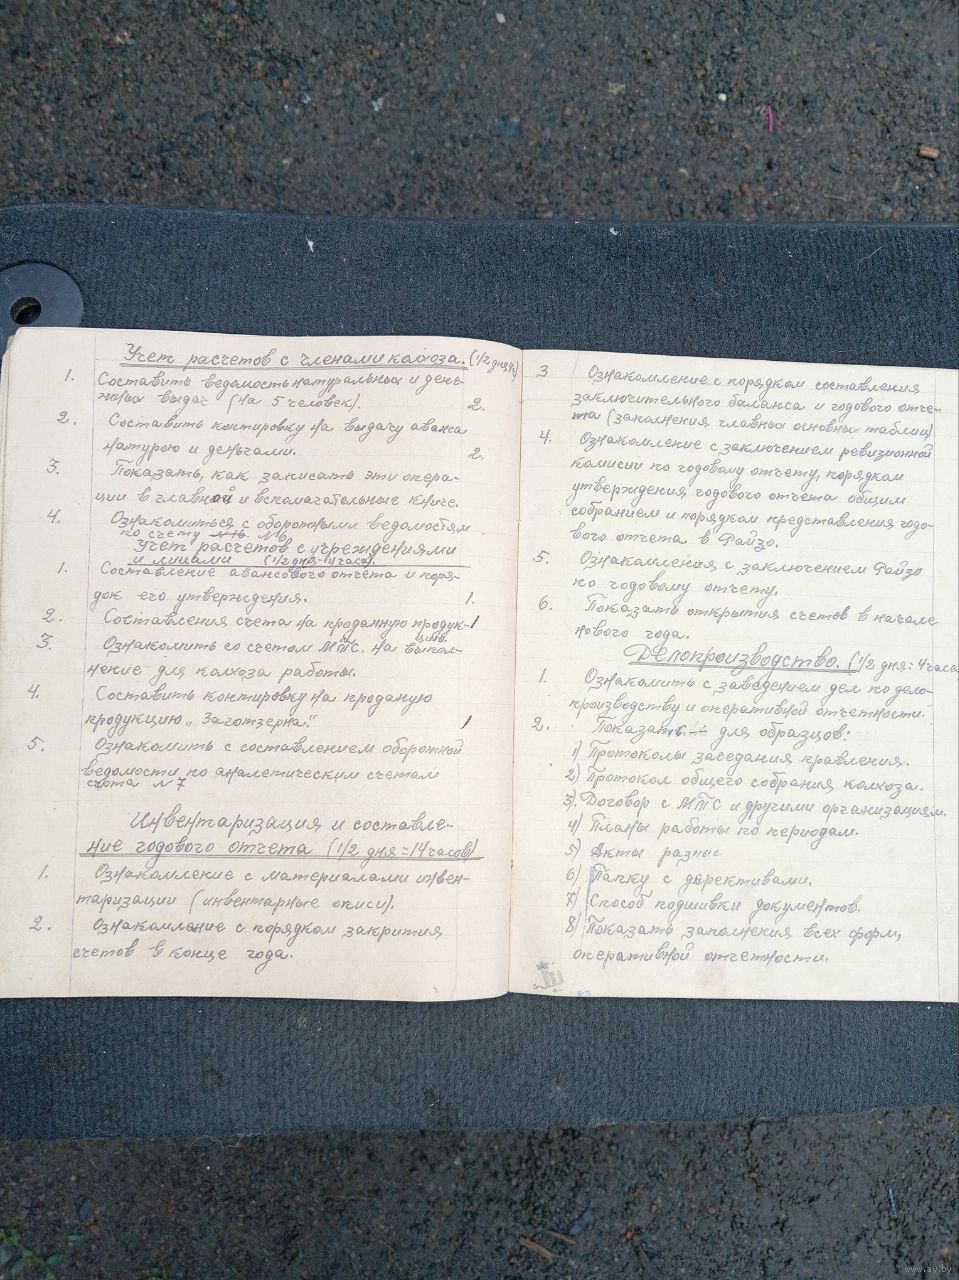 Учет расчетов с членами колхоза. (1/2 дня,
1. Составить ведомость натуральных и дене-
жных выдач (на 5 человек). 2.
2. Составить контировку на выдачу аванса
натурою и деньгами. 2.
3. Показать, как записать эти опера-
ции в главной и вспомагательные книге.
4. Ознакомиться с оборотными ведомостям
по счету №6
Учет расчетов с учреждениями
и лицами (1/2 дня=4 часа).
1. Составление авансового отчета и поря-
док его утверждения. 1.
2. Составления счета на проданную продук- 1
цию.
3. Ознакомить со счетом МТС. на выпол-
нение для колхоза работы.
4. Составить контировку на проданую
продукцию „Заготзерна." 1
5. Ознакомить с составлением оборотной
ведомости по аналетическим счетам
счета №7
Инвентаризация и составле-
ние годового отчета (1/2 дня=14 часов)
1. Ознакомление с материалами инвен-
таризации (инвентарные описи).
2. Ознакамление с порядком закрития
счетов в конце года.
3 Ознакомление с порядком составления
заключительного баланса и годового отче-
та (заполнения главных основных таблиц)
4. Ознакомление с заключением ревизионной
комисии по годовому отчету, порядком
утверждения годового отчета общим
собранием и порядком представления годо-
вого отчета в Райзо.
5. Ознакомления с заключением Райзо
по годовому отчету.
6. Показать открытия счетов в начале
нового года.
Делопроизводство. (1/2 дня=4часа
1. Ознакомить с заведением дел по дело-
производству и оперативной отчетности.
2. Показать для образцов:
1) Протоколы заседания правления.
2) Протокол общего собрания колхоза.
3) Договор с МТС и другими организациям.
4) Планы работы по периодам.
5) Акты разные
6) Папку с дерективами.
7) Способ подшивки документов.
8) Показать заполнения всех форм,
оперативной отчетности.
www.ay.by